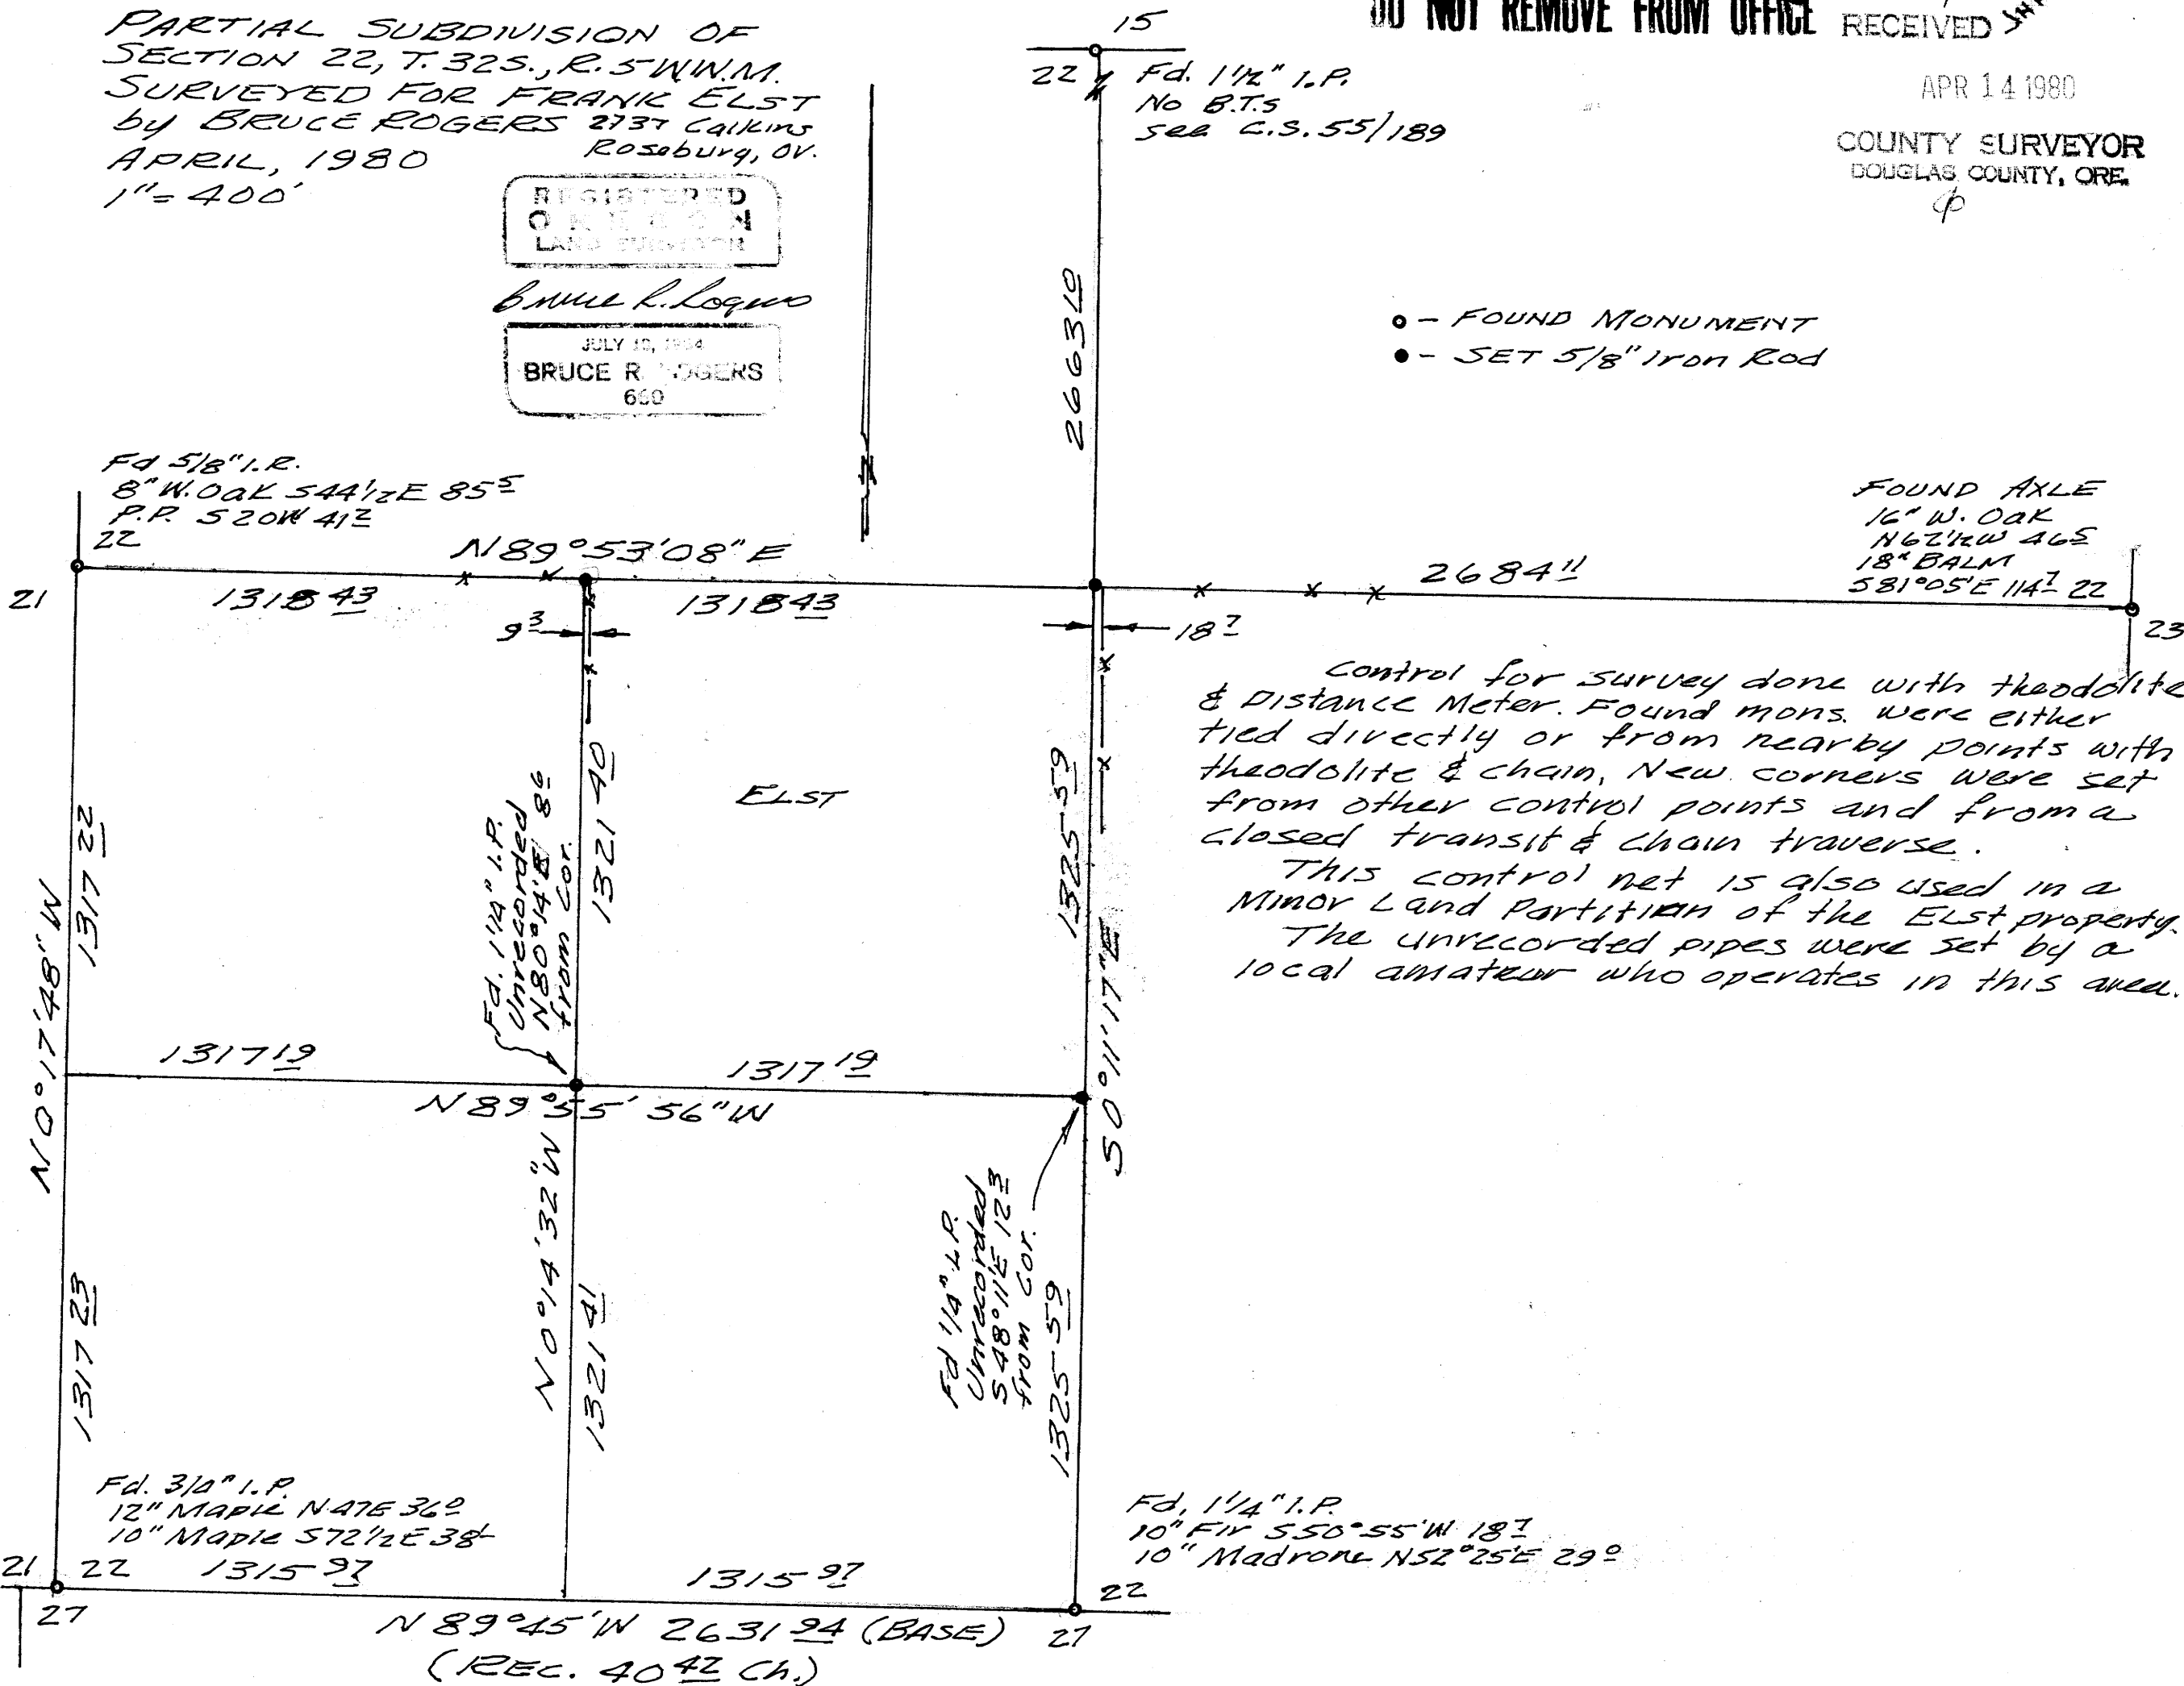 PARTIAL SUBDIVISION OF
SECTION 22, T. 32S., R. 5 W.W.M.
SURVEYED FOR FRANK ELST
by BRUCE ROGERS 2737 Calkins
Roseburg, Or.
APRIL, 1980
1" = 400'
REGISTERED
OREGON
LAND SURVEYOR
Bruce R. Rogers
JULY
BRUCE R. ROGERS
660
DO NOT REMOVE FROM OFFICE
RECEIVED
APR 14 1980
COUNTY SURVEYOR
DOUGLAS COUNTY, ORE.
15
22
Fd. 1 1/2" I.P.
No B.T.S
see C.S. 55/189
2663 10
o - FOUND MONUMENT
● - SET 5/8" Iron Rod
Fd 5/8" I.R.
8" W. Oak S44 1/2 E 85 5
P.P. S 20 W 41 2
22
21
N 89° 53' 08" E
1318 43
1318 43
2684 11
FOUND AXLE
16" W. Oak
N62 1/2 W 46 5
18" BALM
S81°05'E 114 7
22
23
9 3
18 7
Control for survey done with theodolite
& Distance Meter. Found mons. were either
tied directly or from nearby points with
theodolite & chain. New corners were set
from other control points and from a
closed transit & chain traverse.
This control net is also used in a
Minor Land Partition of the Elst property.
The unrecorded pipes were set by a
local amateur who operates in this area.
ELST
1317 22
N 0° 17' 48" W
1317 23
Fd. 1 1/4" I.P.
Unrecorded
N 80° 14' E 8 6
from Cor.
1321 40
1325 59
S 0° 11' 17" E
1317 19
1317 19
N 89° 55' 56" W
N 0° 14' 32" W
1321 41
Fd 1/4" I.P.
Unrecorded
S 48° 11' E 12 3
from Cor.
1325 59
Fd. 3/4" I.P.
12" Maple N 47 E 36 0
10" Maple S 72 1/2 E 38 1
21
22
27
1315 97
1315 97
Fd. 1 1/4" I.P.
10" Fir S 50° 55' W 18 7
10" Madrone N 52° 25' E 29 0
22
27
N 89° 45' W 2631 94 (BASE)
(REC. 40 42 Ch.)